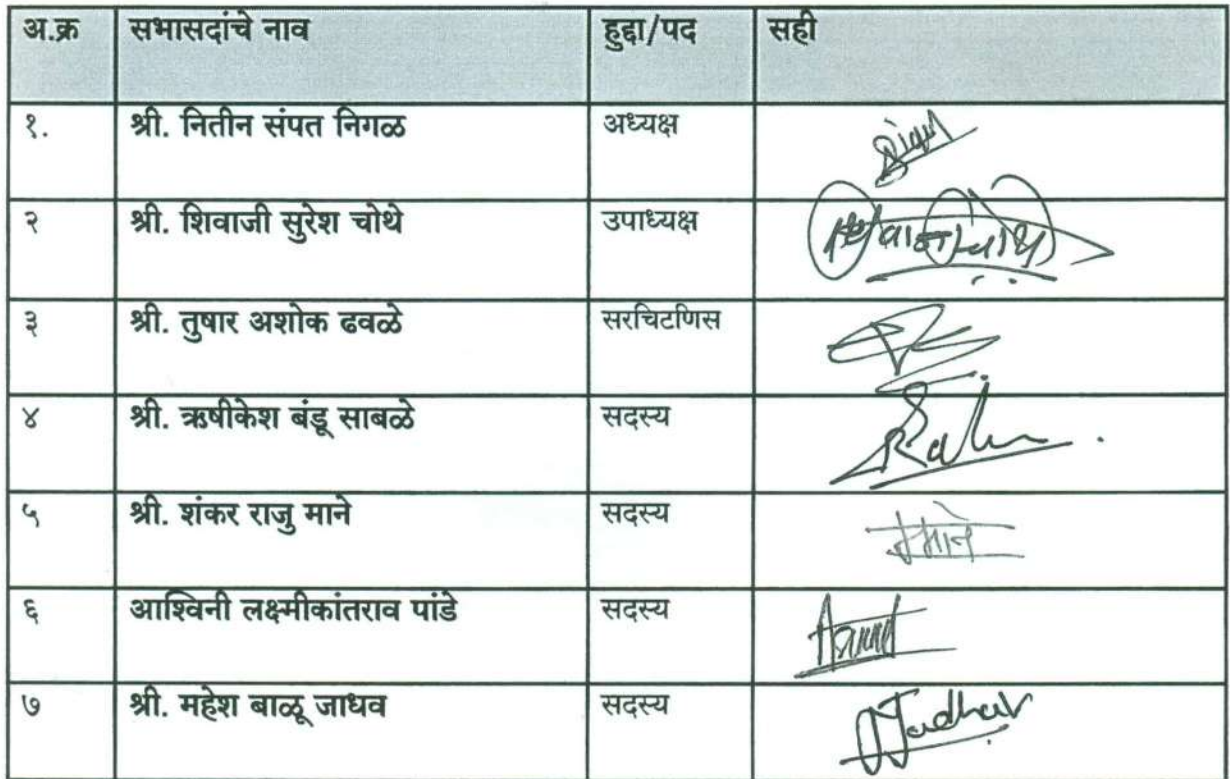 अ.क्र सभासदांचे नाव हुद्दा/पद सही
१. श्री. नितीन संपत निगळ अध्यक्ष
२ श्री. शिवाजी सुरेश चोथे उपाध्यक्ष
३ श्री. तुषार अशोक ढवळे सरचिटणिस
४ श्री. ऋषीकेश बंडू साबळे सदस्य
५ श्री. शंकर राजु माने सदस्य
६ आश्विनी लक्ष्मीकांतराव पांडे सदस्य
७ श्री. महेश बाळू जाधव सदस्य Jadhav